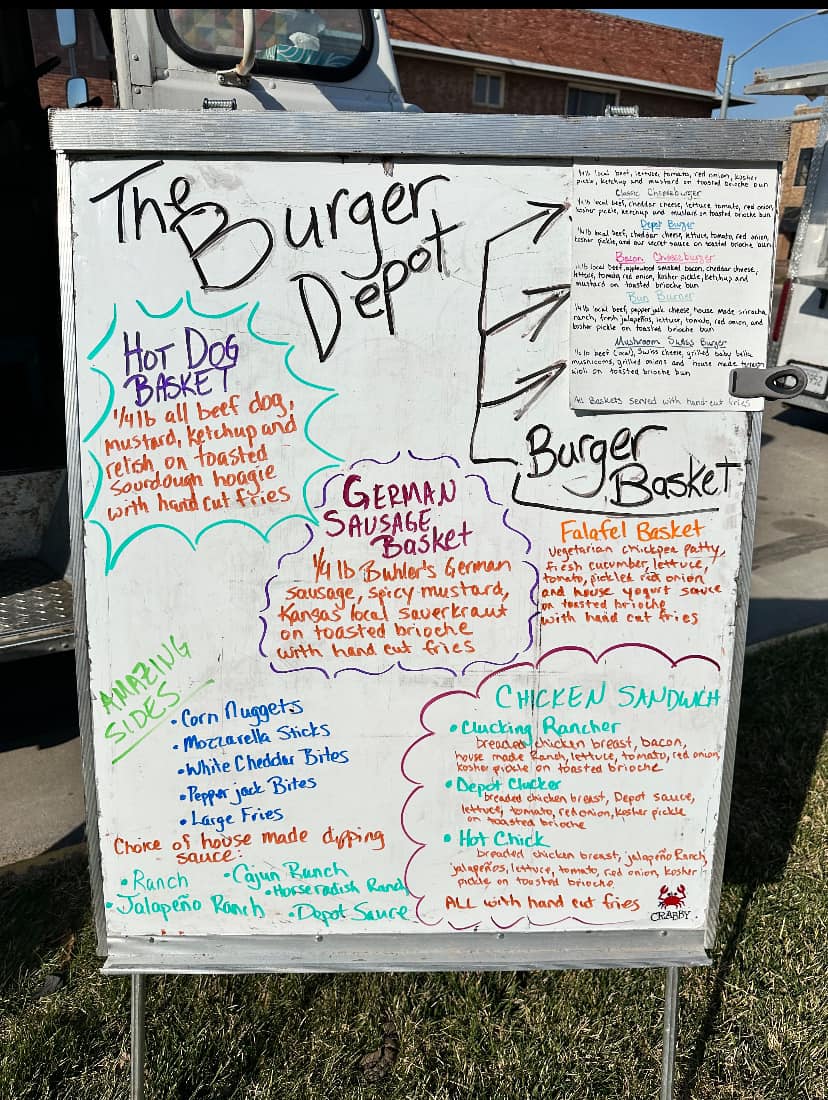 The
Burger
Depot
1/4 lb local beef, lettuce, tomato, red onion, kosher
pickle, ketchup and mustard on toasted brioche bun
Classic Cheeseburger
1/4 lb local beef, cheddar cheese, lettuce tomato, red onion,
kosher pickle, ketchup and mustard on toasted brioche bun
Depot Burger
1/4 lb local beef, cheddar cheese, lettuce, tomato, red onion,
kosher pickle, and our secret sauce on toasted brioche bun
Bacon Cheeseburger
1/4 lb local beef, applewood smoked bacon, cheddar cheese,
lettuce, tomato, red onion, kosher pickle, ketchup and
mustard on toasted brioche bun
Burger
1/4 lb local beef, pepper jack cheese, house made sriracha
ranch, fresh jalapeños, lettuce, tomato, red onion, and
kosher pickle on toasted brioche bun
Mushroom Swiss Burger
beef (local), Swiss cheese, grilled baby bella
mushrooms, grilled onions and house made
aioli on toasted brioche bun
All Baskets served with hand-cut fries
Burger
Basket
HOT DOG
BASKET
1/4 lb all beef dog,
mustard, ketchup and
relish on toasted
sourdough hoagie
with hand cut fries
GERMAN
SAUSAGE
Basket
1/4 lb Buhler's German
sausage, spicy mustard,
Kansas local sauerkraut
on toasted brioche
with hand cut fries
Falafel Basket
vegetarian chickpea patty,
fresh cucumber, lettuce,
tomato, pickled red onion
and house yogurt sauce
on toasted brioche
with hand cut fries
AMAZING
SIDES
•Corn Nuggets
•Mozzarella Sticks
•White Cheddar Bites
•Pepper jack Bites
•Large Fries
Choice of house made dipping
sauce:
•Ranch •Cajun Ranch
•Horseradish Ranch
•Jalapeño Ranch •Depot Sauce
CHICKEN SANDWICH
•Clucking Rancher
breaded chicken breast, bacon,
house made Ranch, lettuce, tomato, red onion,
kosher pickle on toasted brioche
•Depot Clucker
breaded chicken breast, Depot sauce,
lettuce, tomato, red onion, kosher pickle
on toasted brioche
•Hot Chick
breaded chicken breast, jalapeño Ranch,
jalapeños, lettuce, tomato, red onion, kosher
pickle on toasted brioche
ALL with hand cut fries
CRABBY